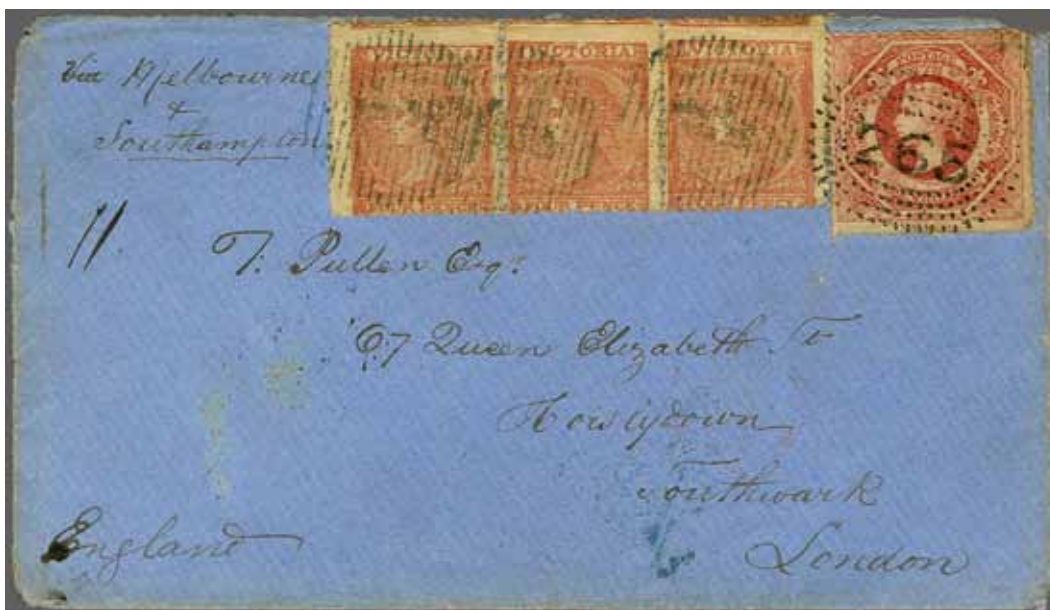 Via Melbourne
&
Southampton
VICTORIA
VICTORIA
VICTORIA
POSTAGE
A 65
11.
T. Pullen Esqr
67 Queen Elizabeth St
Horsleydown
Southwark
London
England